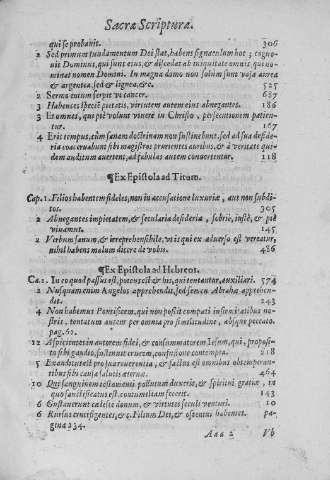 Sacræ Scripturæ.
qui se probauit. 306
2 Sed primum fundamentum Dei stat, habens signaculum hoc; cognouit
Dominus, qui sunt eius, & discedat ab iniquitate omnis, qui nominat
nomen Domini. In magna domo non solum sunt vasa aurea
& argentea, sed & lignea, &c. 525
2 Sermo eorum serpit vt cancer. 687
3 Habentes speciē pietatis, virtutem autem eius abnegantes. 186
3 Et omnes, qui piè volunt viuere in Christo, persecutionem patientur. 167
4 Erit tempus, cùm sanam doctrinam non sustinebunt, sed ad sua desideria
coaceruabunt sibi magistros prurientes auribus, & à veritate quidem
auditum auertent, ad fabulas autem conuertentur. 118
¶Ex Epistola ad Titum.
Cap. 1. Filios habentem fideles, non in accusatione luxuriæ, aut non subditos. 305
2 Abnegantes impietatem, & secularia desideria, sobriè, iustè, & piè
viuamus. 145
2 Verbum sanum, & irreprehensibile, vt is qui ex aduerso est vereatur,
nihil habens malum dicere de vobis. 486
¶Ex Epistola ad Hebreos.
Ca. 2. In eo quod passus est, potens est & his, qui tentantur, auxiliari. 574
2 Nusquam enim Angelos apprehendit, sed semen Abrahæ apprehendit. 243
4 Non habemus Pontificem, qui non possit compati infirmitatibus nostris,
tentatum autem per omnia pro similitudine, absque peccato.
pag. 62.
12 Aspicientes in autorem fidei, & consummatorem Iesum, qui, proposito
sibi gaudio, sustinuit crucem, confusione contempta. 218
5 Exauditus est pro sua reuerentia, & factus est omnibus obtemperantibus
sibi causa salutis æternæ. 464
10 Qui sanguinem testamenti pollutum duxerit, & spiritui gratiæ, in
quo sanctificatus est, contumeliam fecerit. 143
6 Gustauerunt cæleste donum, & virtutes seculi venturi. 10
6 Rursus crucifigentes, & ç. Filium Dei, & ostentui habentes. pagina
334.
Aaa 2 Vb